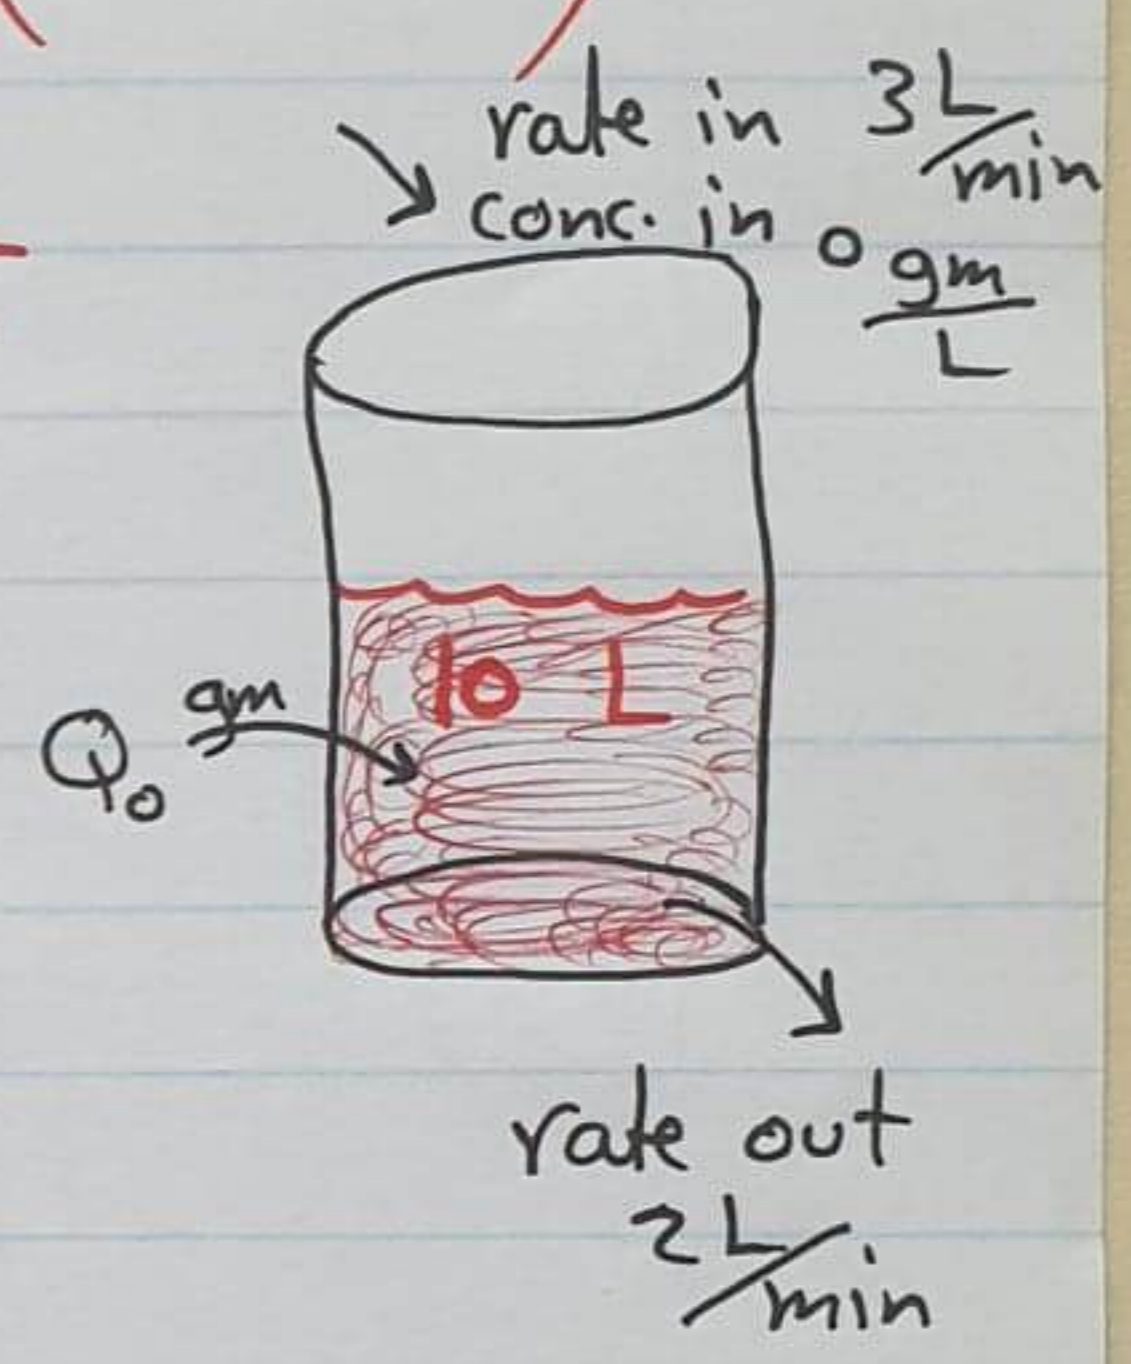 rate in 3 L/min
conc. in 0 gm/L
10 L
Q₀ gm
rate out
2 L/min